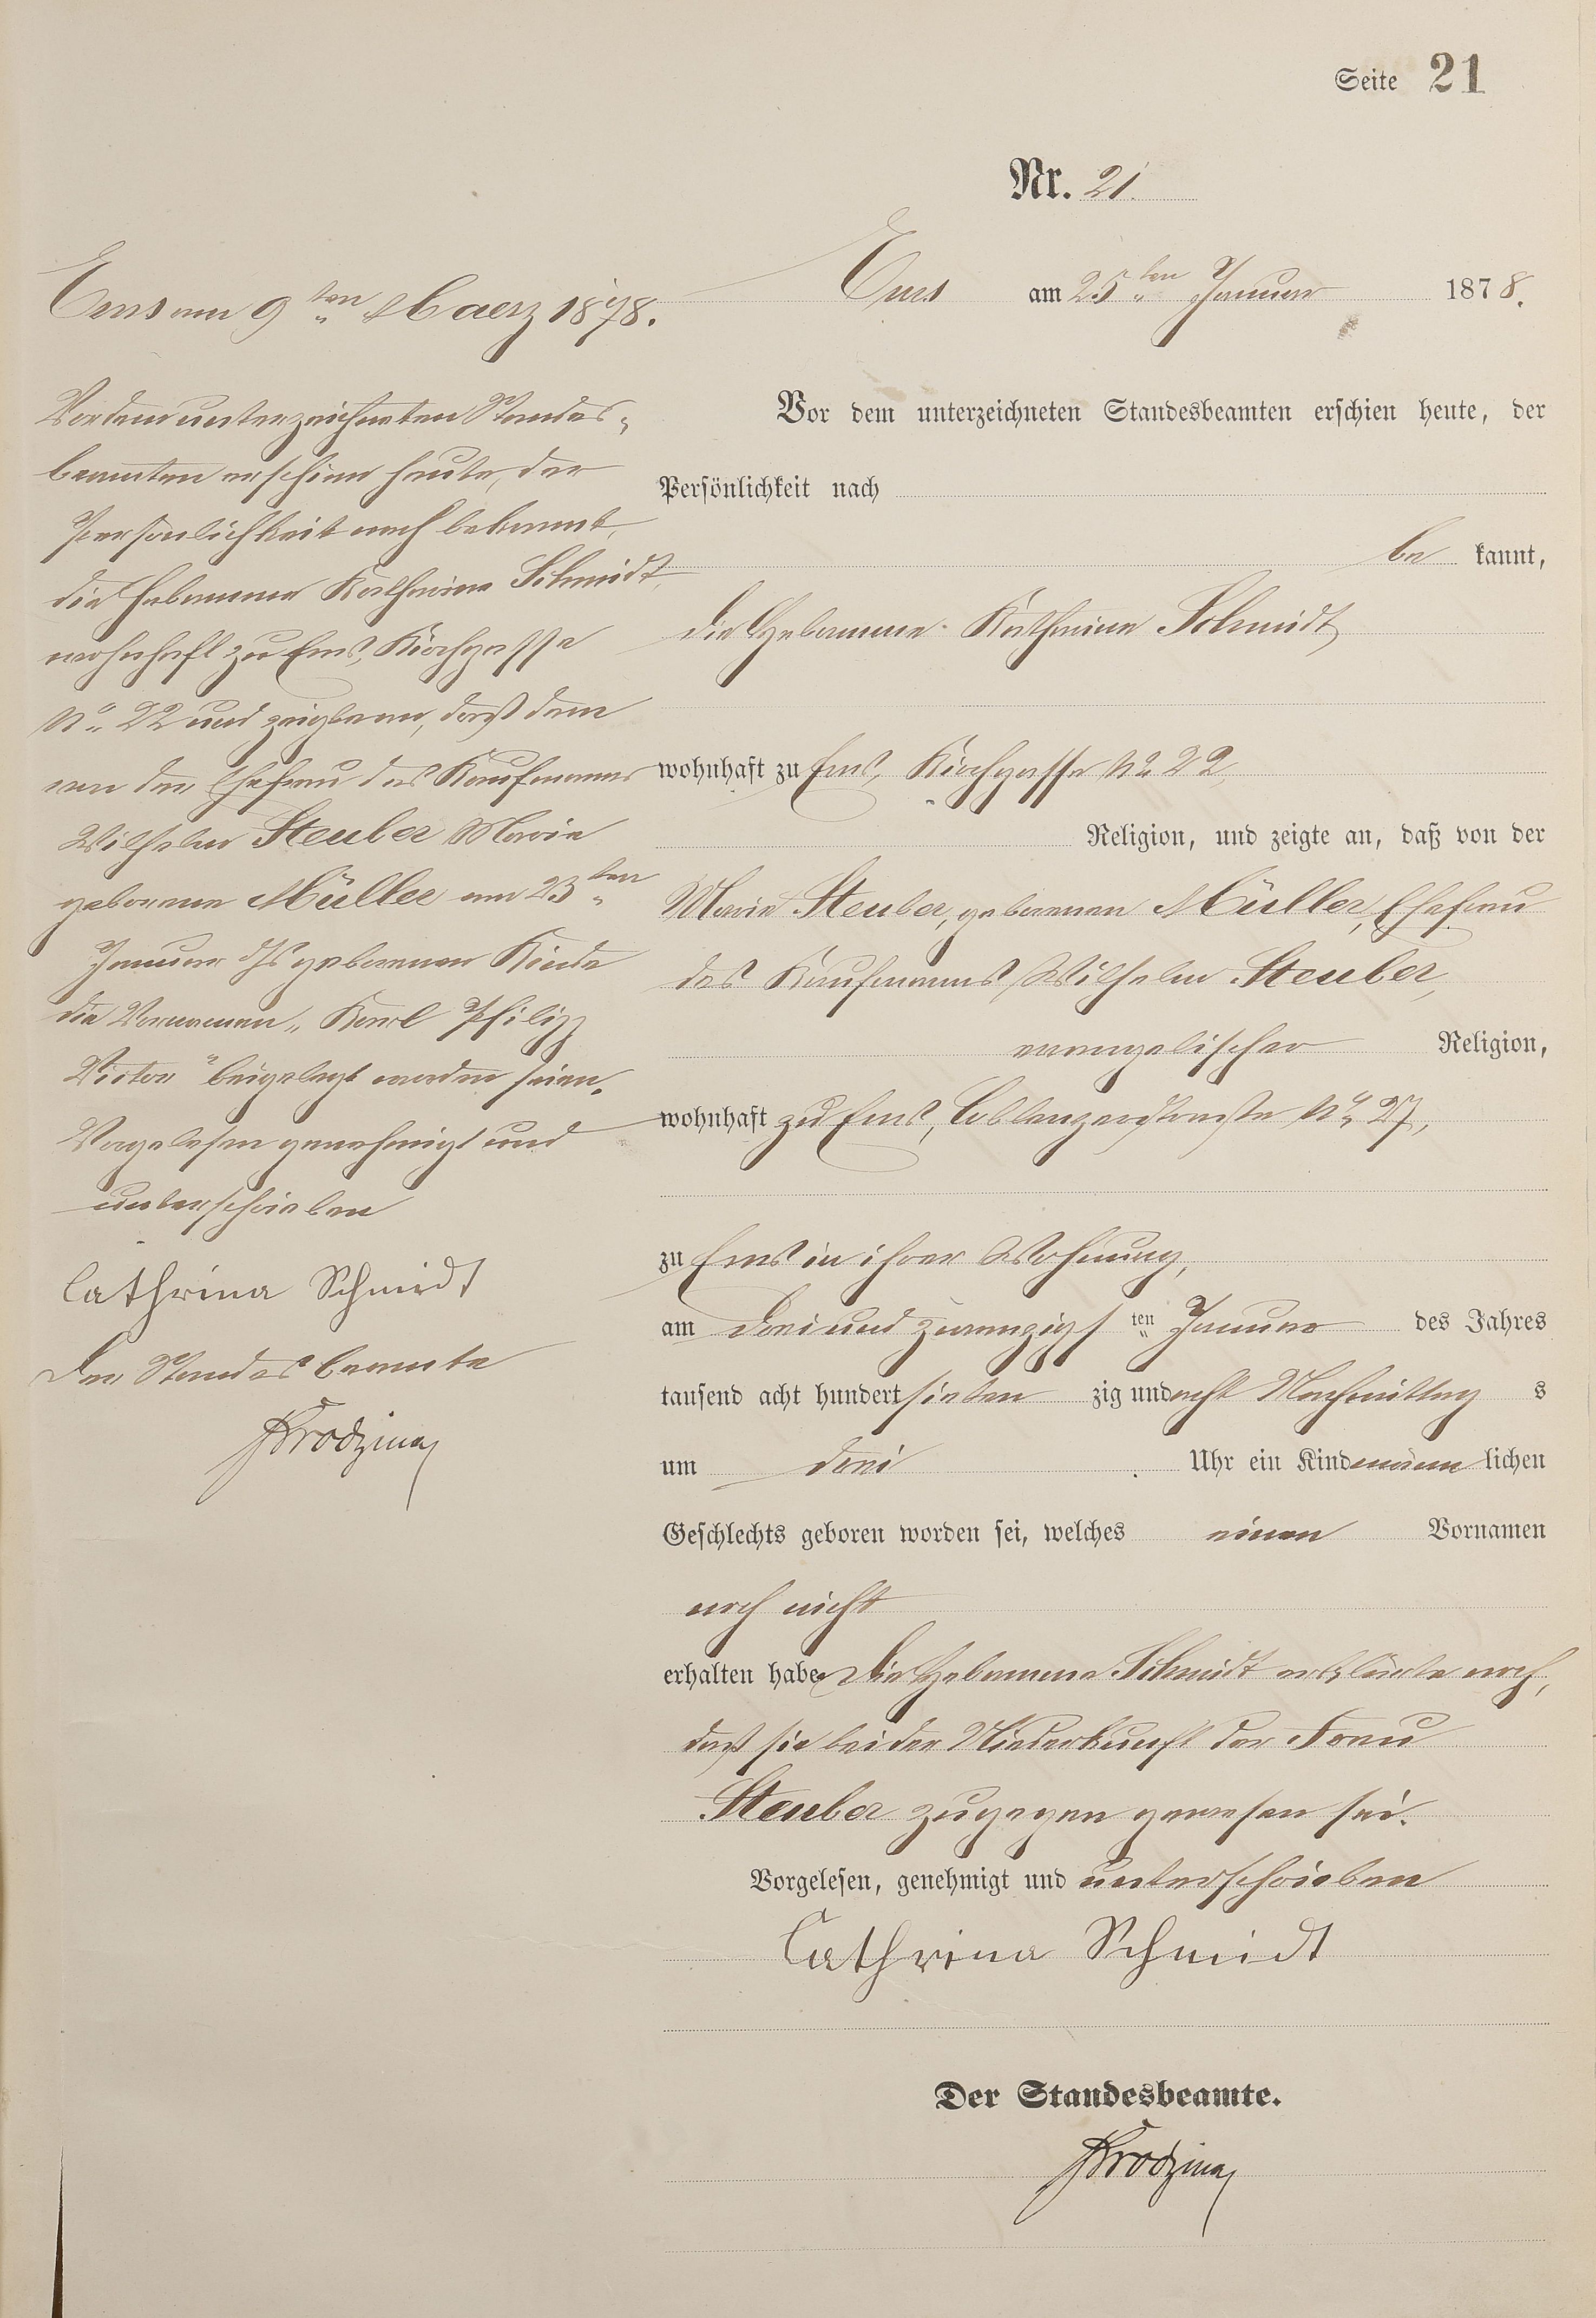 Seite 21
Nr. 21.
Ems am 25ten Januar 1878.
Vor dem unterzeichneten Standesbeamten erschien heute, der
Persönlichkeit nach
be kannt,
die Hebamme Katharina Schmidt,
wohnhaft zu Ems, Kirchgasse No 22,
Religion, und zeigte an, daß von der
Marie Steuber, geborenen Müller, Ehefrau
des Kaufmanns Wilhelm Steuber,
evangelischer Religion,
wohnhaft zu Ems, Coblenzerstraße No 27,
zu Ems in ihrer Wohnung,
am drei und zwanzigs ten Januar des Jahres
tausend acht hundert sieben zig und acht Nachmittag s
um drei Uhr ein Kind männ lichen
Geschlechts geboren worden sei, welches einen Vornamen
noch nicht
erhalten habe. Die Hebamme Schmidt erklärte noch,
daß sie bei der Niederkunft der Frau
Steuber zugegen gewesen sei.
Vorgelesen, genehmigt und unterschrieben
Cathrina Schmidt
Der Standesbeamte.
Ems am 9ten Maerz 1878.
Vor dem unterzeichneten Standes-
beamten erschien heute, der
Persönlichkeit nach bekannt,
die Hebamme Katharina Schmidt,
wohnhaft zu Ems, Kirchgasse
No 22 und zeigte an, daß dem
von der Ehefrau des Kaufmanns
Wilhelm Steuber Marie
geborene Müller am 23ten
Januar d Js geborenen Kinde
die Vornamen „Karl Philipp
Victor" beigelegt worden seien.
Vorgelesen genehmigt und
unterschrieben
Cathrina Schmidt
Der Standesbeamte